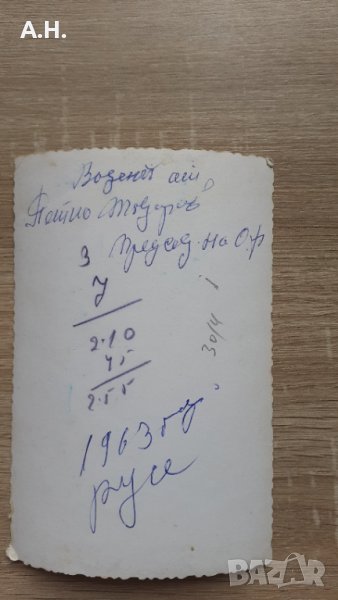 А.Н.
Водени от
Петко Тодоров
3 Председ. на О.Ф
7
2.10
45
2.55
30/4
1963 г.
русе
BAZAR